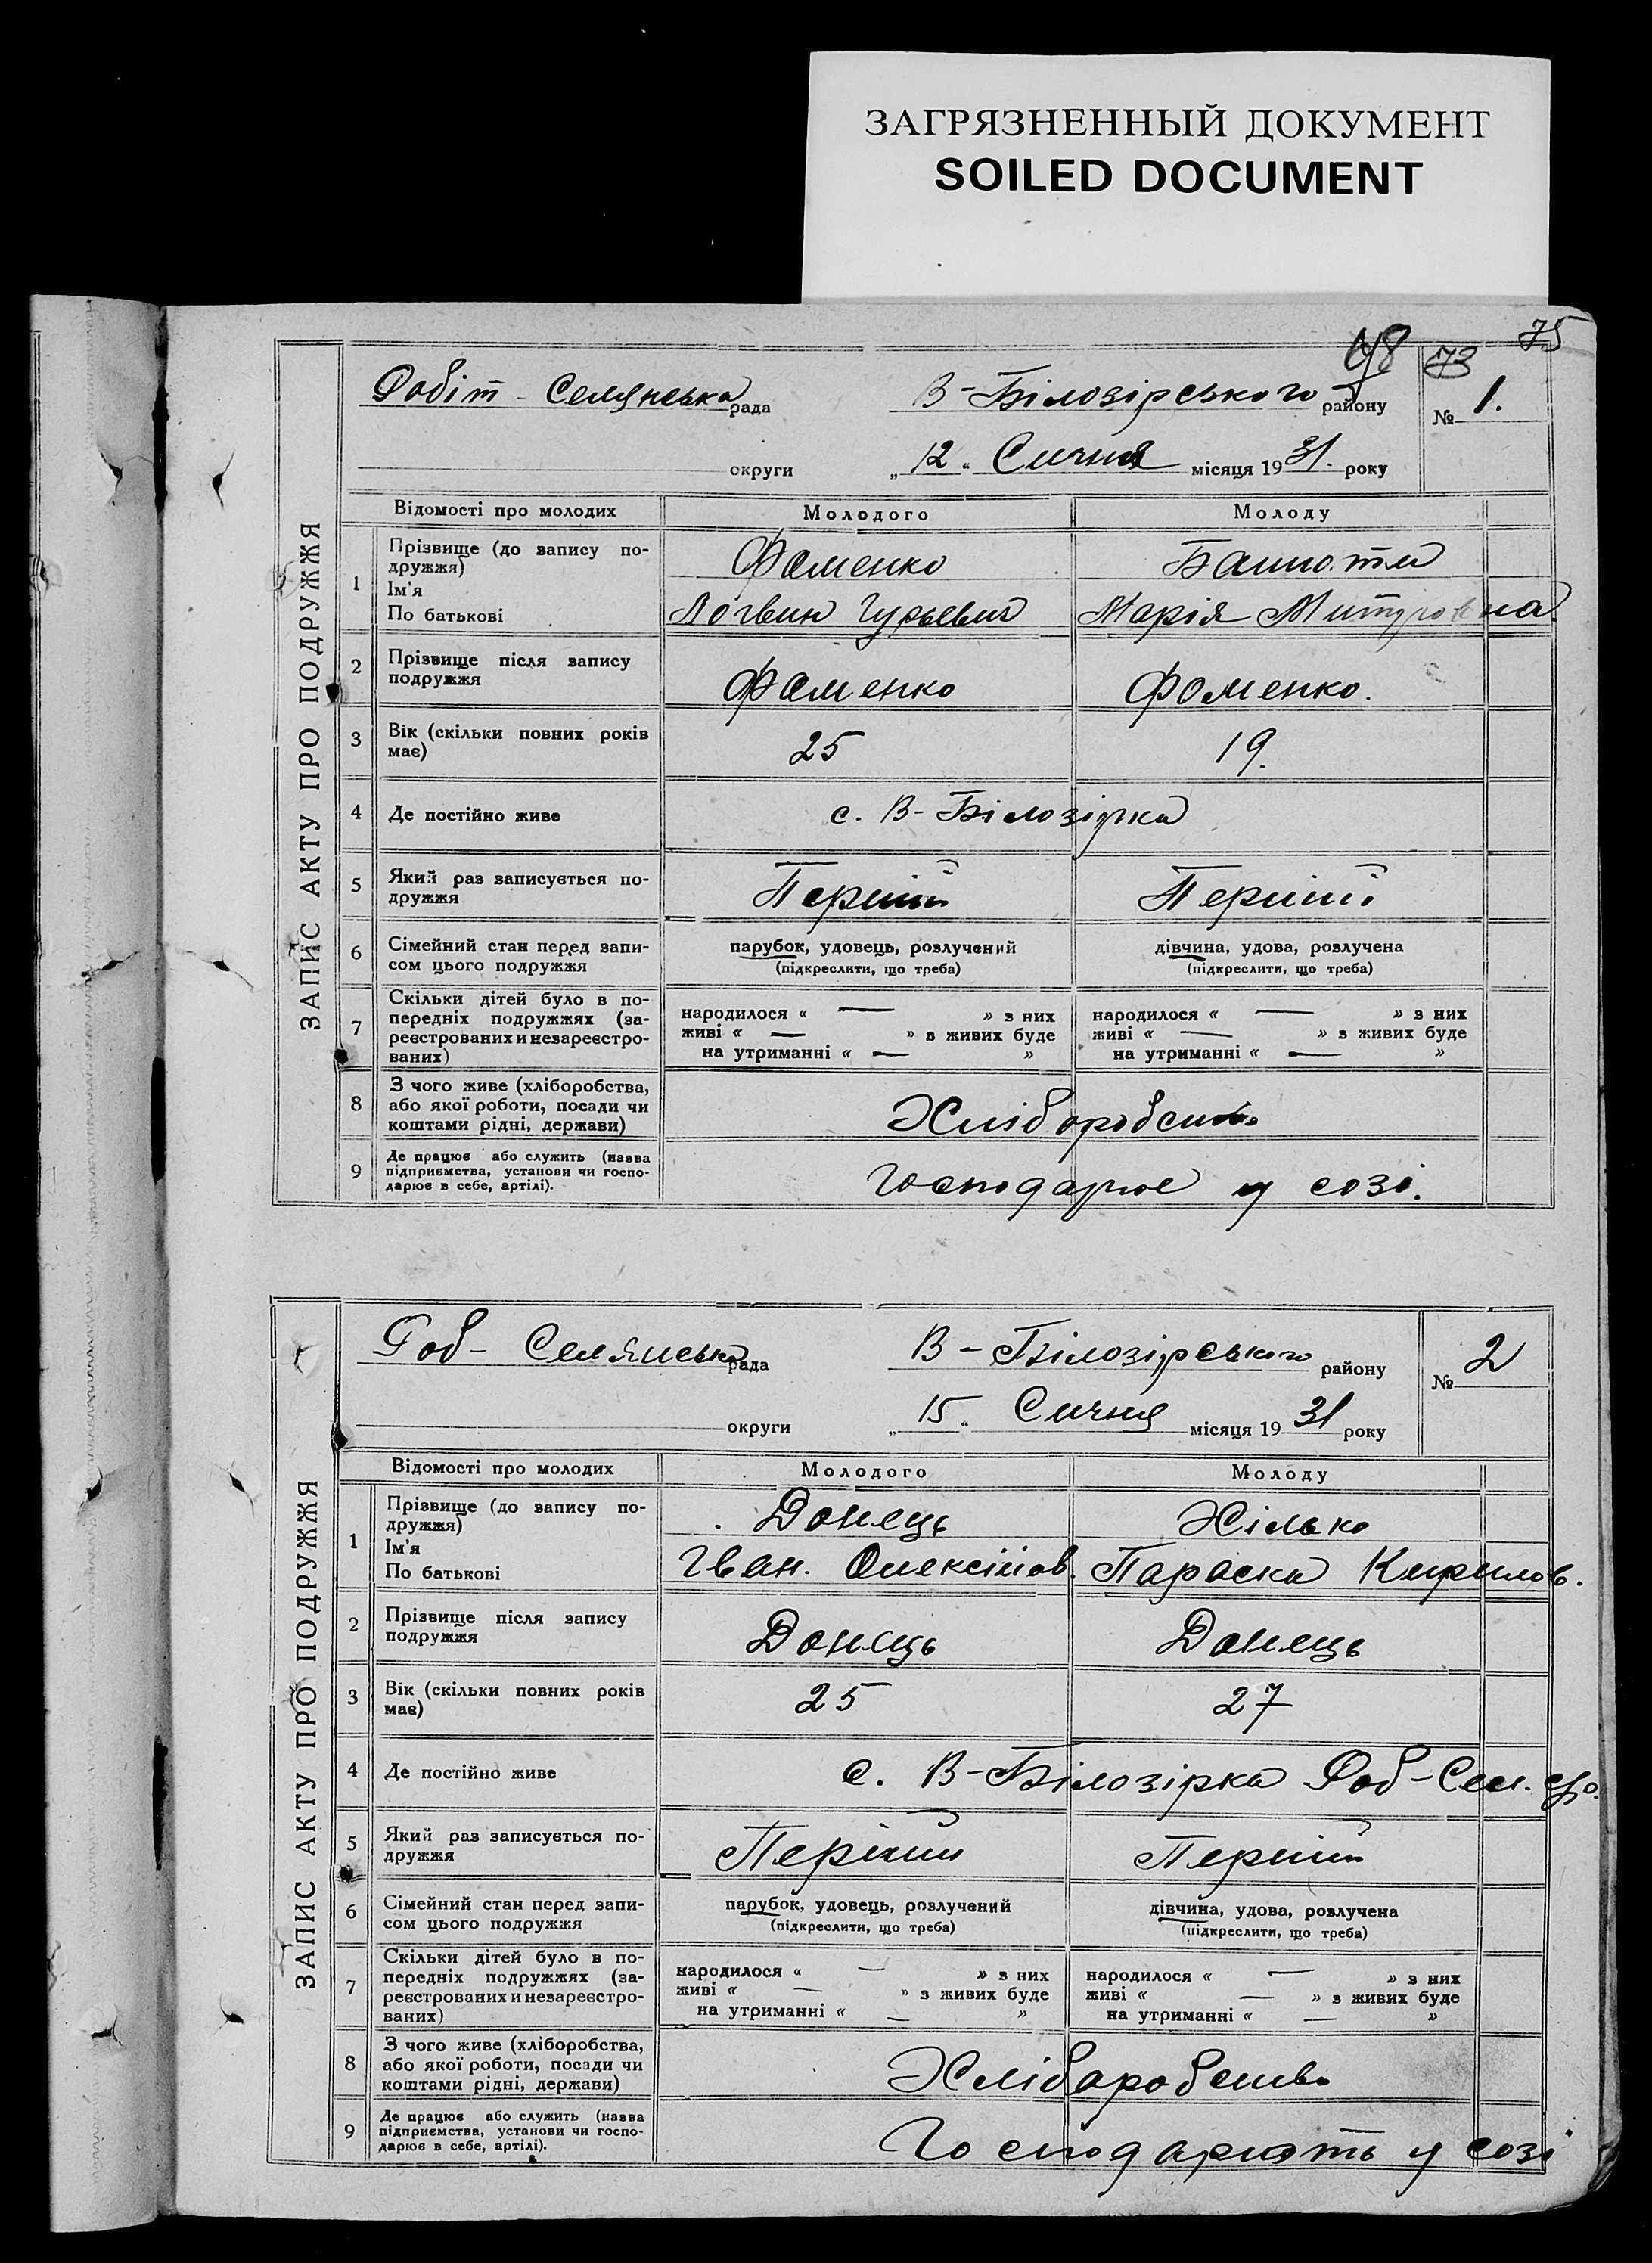 ЗАГРЯЗНЕННЫЙ ДОКУМЕНТ
SOILED DOCUMENT
75
98 73
ЗАПИС АКТУ ПРО ПОДРУЖЖЯ
Робіт - Селянська рада В-Білозірського району № 1.
округи „12" Січня місяця 1931. року
Відомості про молодих Молодого Молоду
1 Прізвище (до запису по-
дружжя) Фоменко
Ім'я
По батькові Логвин Гурьевич Марія
2 Прізвище після запису
подружжя Фоменко Фоменко.
3 Вік (скільки повних років
має) 25 19.
4 Де постійно живе с. В-Білозірка
5 Який раз записується по-
дружжя Перший Перший
6 Сімейний стан перед запи-
сом цього подружжя
парубок, удовець, розлучений дівчина, удова, розлучена
(підкреслити, що треба) (підкреслити, що треба)
7 Скільки дітей було в по-
передніх подружжях (за-
реєстрованих и незареєстро-
ваних)
народилося « — » з них народилося « — » з них
живі « — » з живих буде живі « — » з живих буде
на утриманні « — » на утриманні « — »
8 З чого живе (хліборобства,
або якої роботи, посади чи
коштами рідні, держави) Хліборобство
9 Де працює або служить (назва
підприємства, установи чи госпо-
дарює в себе, артілі). Господарює у созі.
ЗАПИС АКТУ ПРО ПОДРУЖЖЯ
Роб- Селянська рада В-Білозірського району № 2
округи „15" Січня місяця 1931 року
Відомості про молодих Молодого Молоду
1 Прізвище (до запису по-
дружжя) Донець Хілько
Ім'я
По батькові Іван. Олексійов. Параска Кирилов.
2 Прізвище після запису
подружжя Донець Донець
3 Вік (скільки повних років
має) 25 27
4 Де постійно живе с. В-Білозірка Роб-Сел.
5 Який раз записується по-
дружжя Перший Перший
6 Сімейний стан перед запи-
сом цього подружжя
парубок, удовець, розлучений дівчина, удова, розлучена
(підкреслити, що треба) (підкреслити, що треба)
7 Скільки дітей було в по-
передніх подружжях (за-
реєстрованих и незареєстро-
ваних)
народилося « — » з них народилося « — » з них
живі « — » з живих буде живі « — » з живих буде
на утриманні « — » на утриманні « — »
8 З чого живе (хліборобства,
або якої роботи, посади чи
коштами рідні, держави) Хліборобство
9 Де працює або служить (назва
підприємства, установи чи госпо-
дарює в себе, артілі). Господарюють у созі